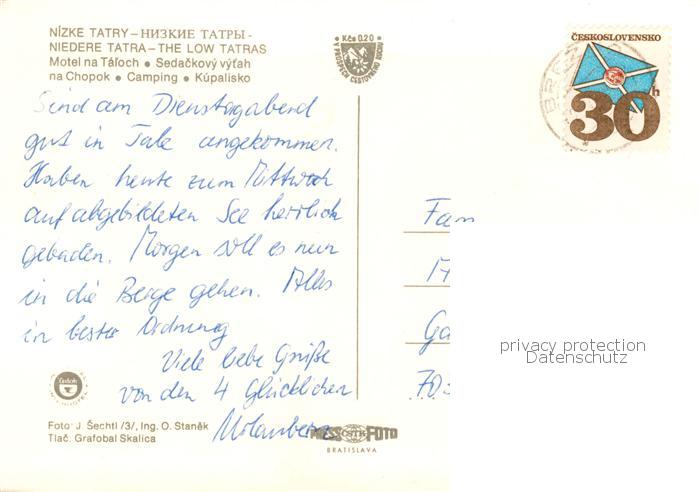 NÍZKE TATRY – НИЗКИЕ ТАТРЫ -
NIEDERE TATRA – THE LOW TATRAS
Motel na Táľoch • Sedačkový výťah
na Chopok • Camping • Kúpalisko
Kčs 0.20
ČESKOSLOVENSKO
30h
Sind am Dienstagabend
gut in Tale angekommen.
Haben heute zum Mittwoch
auf abgebildeten See herrlich
gebaden. Morgen soll es nun
in die Berge gehen. Alles
in bester Ordnung
Viele liebe Grüße
von den 4 Glücklichen
Fam
Ga
70
privacy protection
Datenschutz
Foto: J. Šechtl /3/, Ing. O. Staněk
Tlač. Grafobal Skalica
PRESS ČSTK FOTO
BRATISLAVA